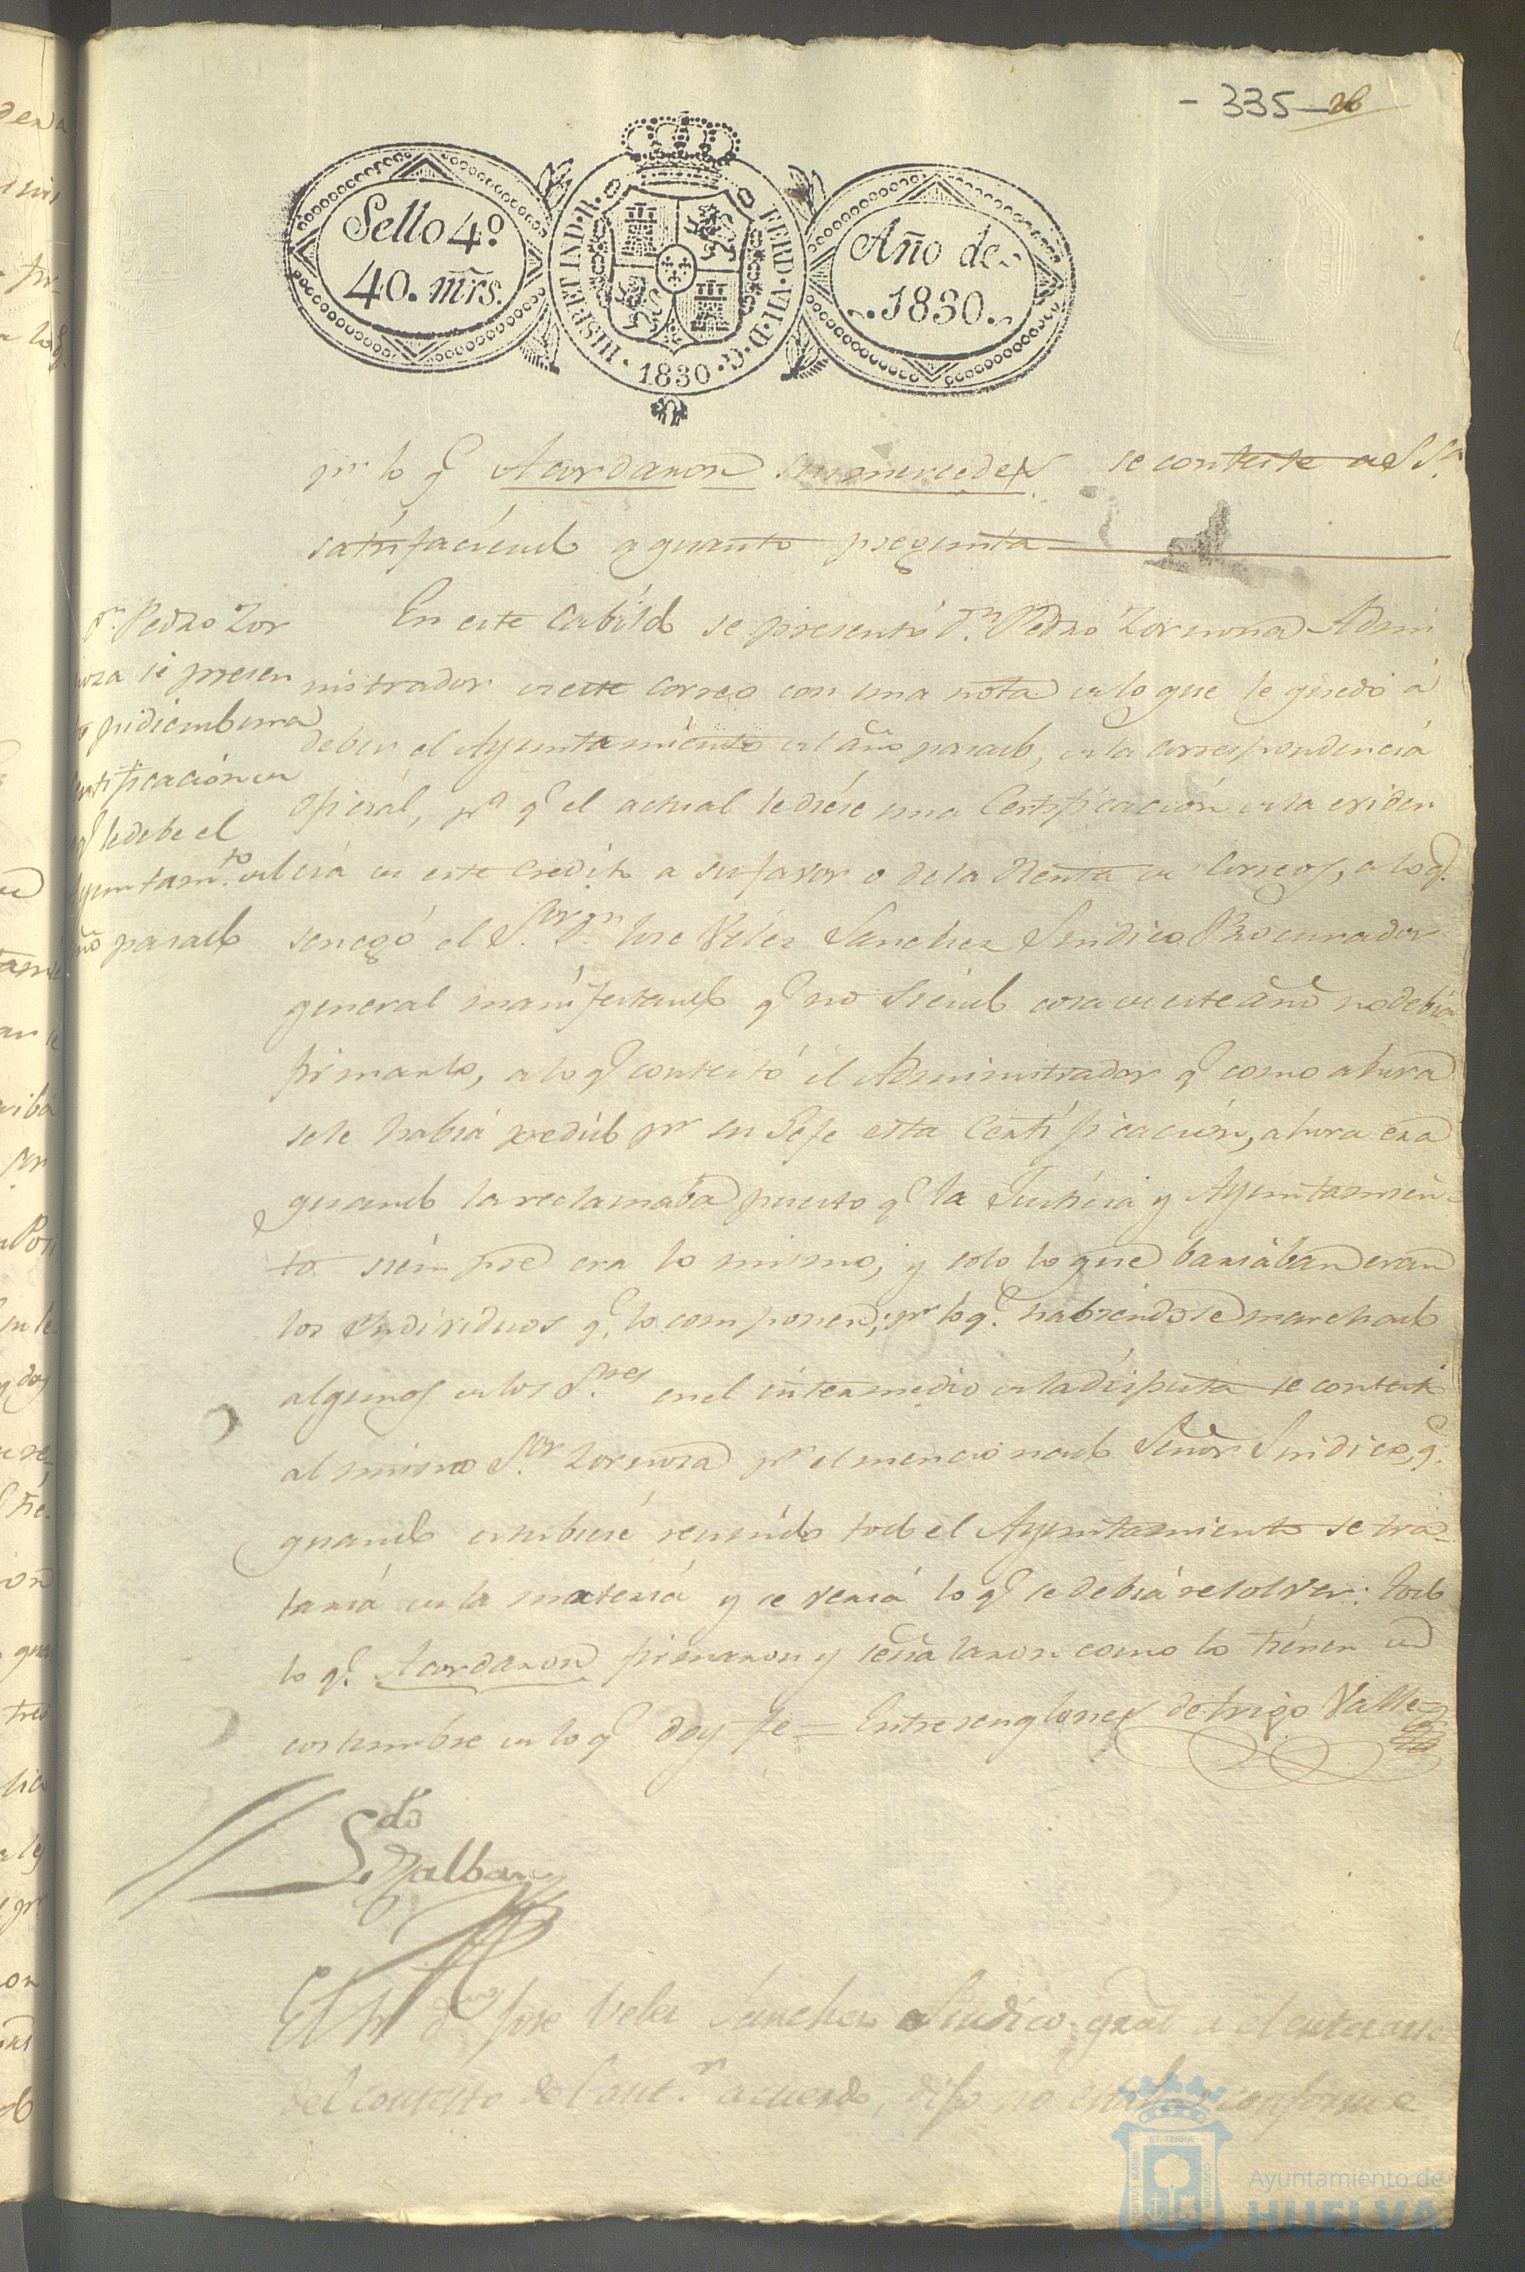 - 335 - 26
Sello 4º.
40. mrs.
HISP. ET IND. R.
FERD. VII. D. G.
1830
Año de
1830.
pr lo q Acordaron sus mercedes se conteste a S Sa.
satisfaciendo a quanto pregunta
Dn Pedro Zor
noza se presen
to pidiendo una
Certificación de
q le debe el
Ayuntamto del
año pasado
En este Cabildo se presentó Dn. Pedro Zornoza Admi
nistrador de este Correo con una nota de lo que le quedó á
deber el Ayuntamiento el año pasado, de la correspondencia
oficial, pa q el actual le diese una Certificación de la eviden
cia de este credito a su favor o de la Renta de Correos, a lo q.
se negó el Sor. Dn. Jose Velez Sanchez Sindico Procurador
general manifestando q no siendo cosa de este año no debia
firmarlo, a lo q contestó el Administrador q como ahora
se le habia pedido pr su Jefe esta Certificación, ahora era
quando la reclamaba puesto q la Justicia y Ayuntamien-
to siempre era lo mismo, y solo lo que bariaban eran
los Individuos q. lo componen; pr lo q. habiendose marchado
algunos de los Sres. en el intermedio de la disputa se contestó
al mismo Sor. Zornoza pr el mencionado Señor Sindico, q.
quando estubiese reunido todo el Ayuntamiento se tra-
taria de la materia y se veria lo q se debia resolver: todo
lo q. Acordaron firmaron y señalaron como lo tienen de
costumbre de lo q doy fe = Entre renglones de trigo Valle=
Sdo
Nalban
El Sr Dn Jose Velez Sanchez Sindico gral a el enterarse
del contesto del antr. acuerdo, dijo no estaba conforme
Ayuntamiento de
HUELVA